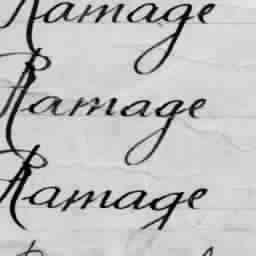 Ramage
Ramage
Ramage